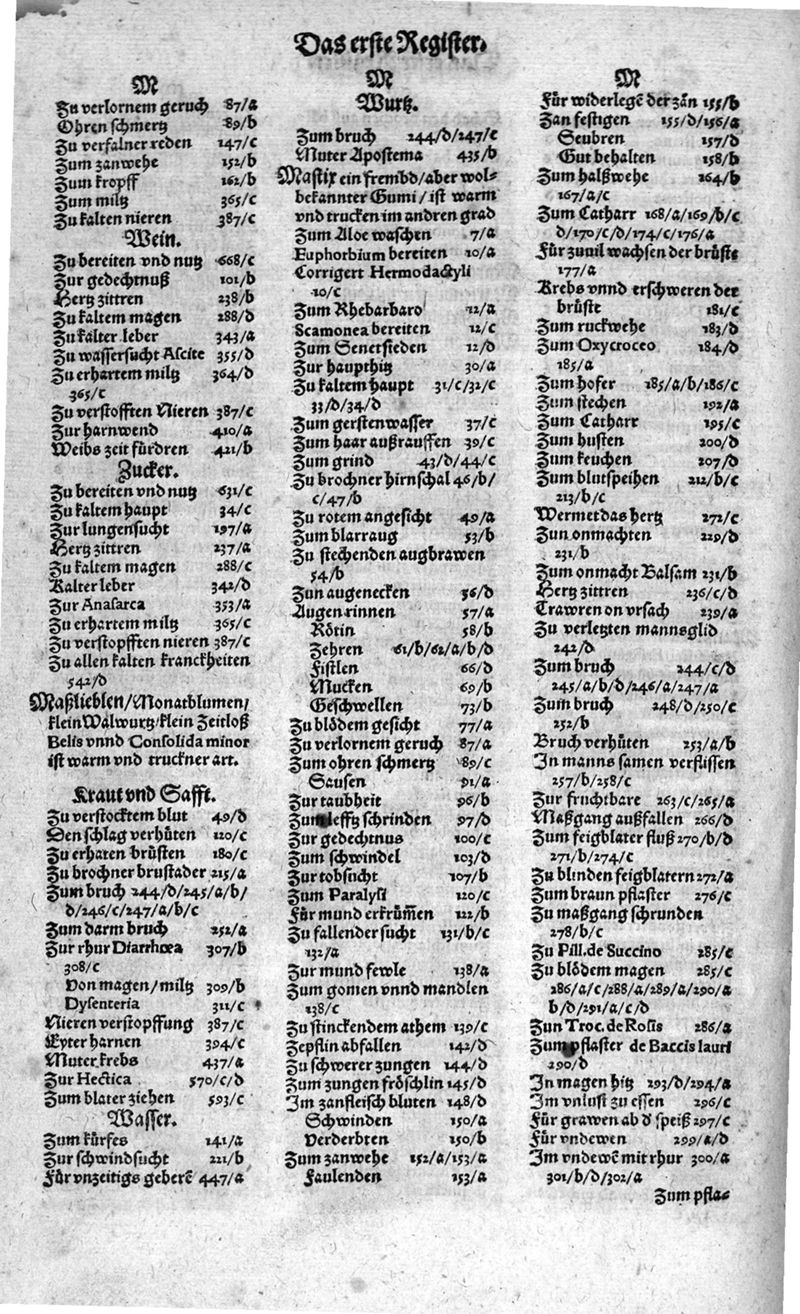 Das erste Register.
M
Zu verlornem geruch 87/a
Ohren schmertz 89/b
Zu verfalner reden 147/c
Zum zanwehe 152/b
Zum kropff 162/b
Zum miltz 365/c
Zu kalten nieren 387/c
Wein.
Zu bereiten vnd nutz 668/c
Zur gedechtnuß 101/b
Hertz zittren 238/b
Zu kaltem magen 288/d
Zu kalter leber 343/a
Zu wassersucht Ascite 355/d
Zu erhartem miltz 364/d
365/c
Zu verstofften Nieren 387/c
Zur harnwend 410/a
Weibs zeit fürdren 421/b
Zucker.
Zu bereiten vnd nutz 631/c
Zu kaltem haupt 34/c
Zur lungensucht 197/a
Hertz zittren 237/a
Zu kaltem magen 288/c
Kalter leber 342/d
Zur Anasarca 353/a
Zu erhartem miltz 365/c
Zu verstopfften nieren 387/c
Zu allen kalten kranckheiten
542/d
Maßlieblen/Monatblumen/
klein Walwurtz/klein Zeitloß
Belis vnnd Consolida minor
ist warm vnd truckner art.
Kraut vnd Safft.
Zu verstocktem blut 49/d
Den schlag verhüten 120/c
Zu erharten brüsten 180/c
Zu brochner brustader 215/a
Zum bruch 244/d/245/a/b/
d/246/c/247/a/b/c
Zum darm bruch 252/a
Zur rhur Diarrhœa 307/b
308/c
Von magen/miltz 309/b
Dysenteria 311/c
Nieren verstopffung 387/c
Eyter harnen 394/c
Muter krebs 437/a
Zur Hectica 570/c/d
Zum blater ziehen 593/c
Wasser.
Zum kürfes 141/a
Zur schwindsucht 221/b
Für vnzeitigs geberē 447/a
M
Wurtz.
Zum bruch 244/d/247/c
Muter Apostema 435/b
Mastix ein frembd/aber wol-
bekannter Gumi/ist warm
vnd trucken im andren grad
Zum Aloe waschen 7/a
Euphorbium bereiten 10/a
Corrigert Hermodactyli
10/c
Zum Rhebarbaro 12/a
Scamonea bereiten 12/c
Zum Senetsieden 12/d
Zur haupthitz 30/a
Zu kaltem haupt 31/c/32/c
33/d/34/d
Zum gerstenwasser 37/c
Zum haar außrauffen 39/c
Zum grind 43/d/44/c
Zu brochner hirnschal 46/b/
c/47/b
Zu rotem angesicht 49/a
Zum blarraug 53/b
Zu stechenden augbrawen
54/b
Zun augenecken 56/d
Augen rinnen 57/a
Rötin 58/b
Zehren 61/b/62/a/b/d
Fistlen 66/d
Mucken 69/b
Geschwellen 73/b
Zu blödem gesicht 77/a
Zu verlornem geruch 87/a
Zum ohren schmertz 89/c
Sausen 91/a
Zur taubheit 96/b
Zun lefftz schrinden 97/d
Zur gedechtnus 100/c
Zum schwindel 103/d
Zur tobsucht 107/b
Zum Paralysi 120/c
Für mund erkrüm̄en 122/b
Zu fallender sucht 131/b/c
132/a
Zur mund fewle 138/a
Zum gomen vnnd mandlen
138/c
Zu stinckendem athem 139/c
Zepflin abfallen 142/d
Zu schwerer zungen 144/d
Zum zungen fröschlin 145/d
Im zanfleisch bluten 148/d
Schwinden 150/a
Verderbten 150/b
Zum zanwehe 152/a/153/a
Faulenden 153/a
M
Für widerlegē der zän 155/b
Zan festigen 155/d/156/a
Seubren 157/d
Gut behalten 158/b
Zum halßwehe 164/b
167/a/c
Zum Catharr 168/a/169/b/c
d/170/c/d/174/c/176/a
Für zuuil wachsen der brüste
177/a
Krebs vnnd erschweren der
brüste 181/c
Zum ruckwehe 183/d
Zum Oxycroceo 184/d
185/a
Zum hofer 185/a/b/186/c
Zum stechen 192/a
Zum Catharr 195/c
Zum husten 200/d
Zum keuchen 207/d
Zum blutspeihen 212/b/c
213/b/c
Wermet das hertz 272/c
Zun onmachten 229/d
231/b
Zum onmacht Balsam 231/b
Hertz zittren 236/c/d
Trawren on vrsach 239/a
Zu verletzten mannsglid
242/d
Zum bruch 244/c/d
245/a/b/d/246/a/247/a
Zum bruch 248/d/250/c
252/b
Bruch verhüten 253/a/b
In manns samen verflissen
257/b/258/c
Zur fruchtbare 263/c/265/a
Maßgang außfallen 266/d
Zum feigblater fluß 270/b/d
271/b/274/c
Zu blinden feigblatern 272/a
Zum braun pflaster 276/c
Zu maßgang schrunden
278/b/c
Zu Pill. de Succino 285/c
Zu blödem magen 285/c
286/a/c/288/a/289/a/290/a
b/d/291/a/c/d
Zun Troc. de Rosis 286/a
Zum pflaster de Baccis lauri
290/d
In magen hitz 293/d/294/a
Im vnlust zu essen 296/c
Für grawen ab d speiß 297/c
Für vndewen 299/a/d
Im vndewē mit rhur 300/a
301/b/d/302/a
Zum pfla-